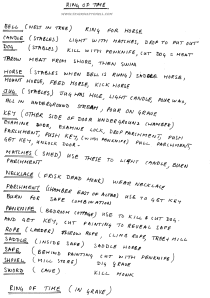 RING OF TIME
BELL (NEST IN TREE) RING FOR HORSE
CANDLE (STABLES) LIGHT WITH MATCHES, DROP TO PUT OUT
DOG (STABLES) KILL WITH PENKNIFE, CUT DOG = MEAT
THROW MEAT FROM SHORE, THEN SWIM
HORSE (STABLES WHEN BELL IS RUNG) SADDLE HORSE,
MOUNT HORSE, FEED HORSE, KICK HORSE
JUG (STABLES) DUG HOLE, LIGHT CANDLE, POUR WAX,
FILL IN UNDERGROUND STREAM, POUR ON GRAVE
KEY (OTHER SIDE OF DOOR UNDERGROUND CHAMBER)
EXAMINE DOOR, EXAMINE LOCK, DROP PARCHMENT, PUSH
PARCHMENT, PUSH KEY (WITH PENKNIFE) PULL PARCHMENT,
GET KEY, UNLOCK DOOR.
MATCHES (SHED) USE THESE TO LIGHT CANDLE, BURN
PARCHMENT
NECKLACE (FRISK DEAD MAN) WEAR NECKLACE
PARCHMENT (CHAMBER EAST OF ALTAR) USE TO GET KEY
BURN FOR SAFE COMBINATION
PENKNIFE (BEDROOM COTTAGE) USE TO KILL & CUT DOG.
AND GET KEY, CUT PAINTING TO REVEAL SAFE
ROPE (LARDER) THROW ROPE, CLIMB ROPE, TREE, MILL
SADDLE (INSIDE SAFE) SADDLE HORSE
SAFE (BEHIND PAINTING CUT WITH PENKNIFE)
SHOVEL (MILL STORE) DIG GRAVE
SWORD (CAVE) KILL MONK
RING OF TIME (IN GRAVE)